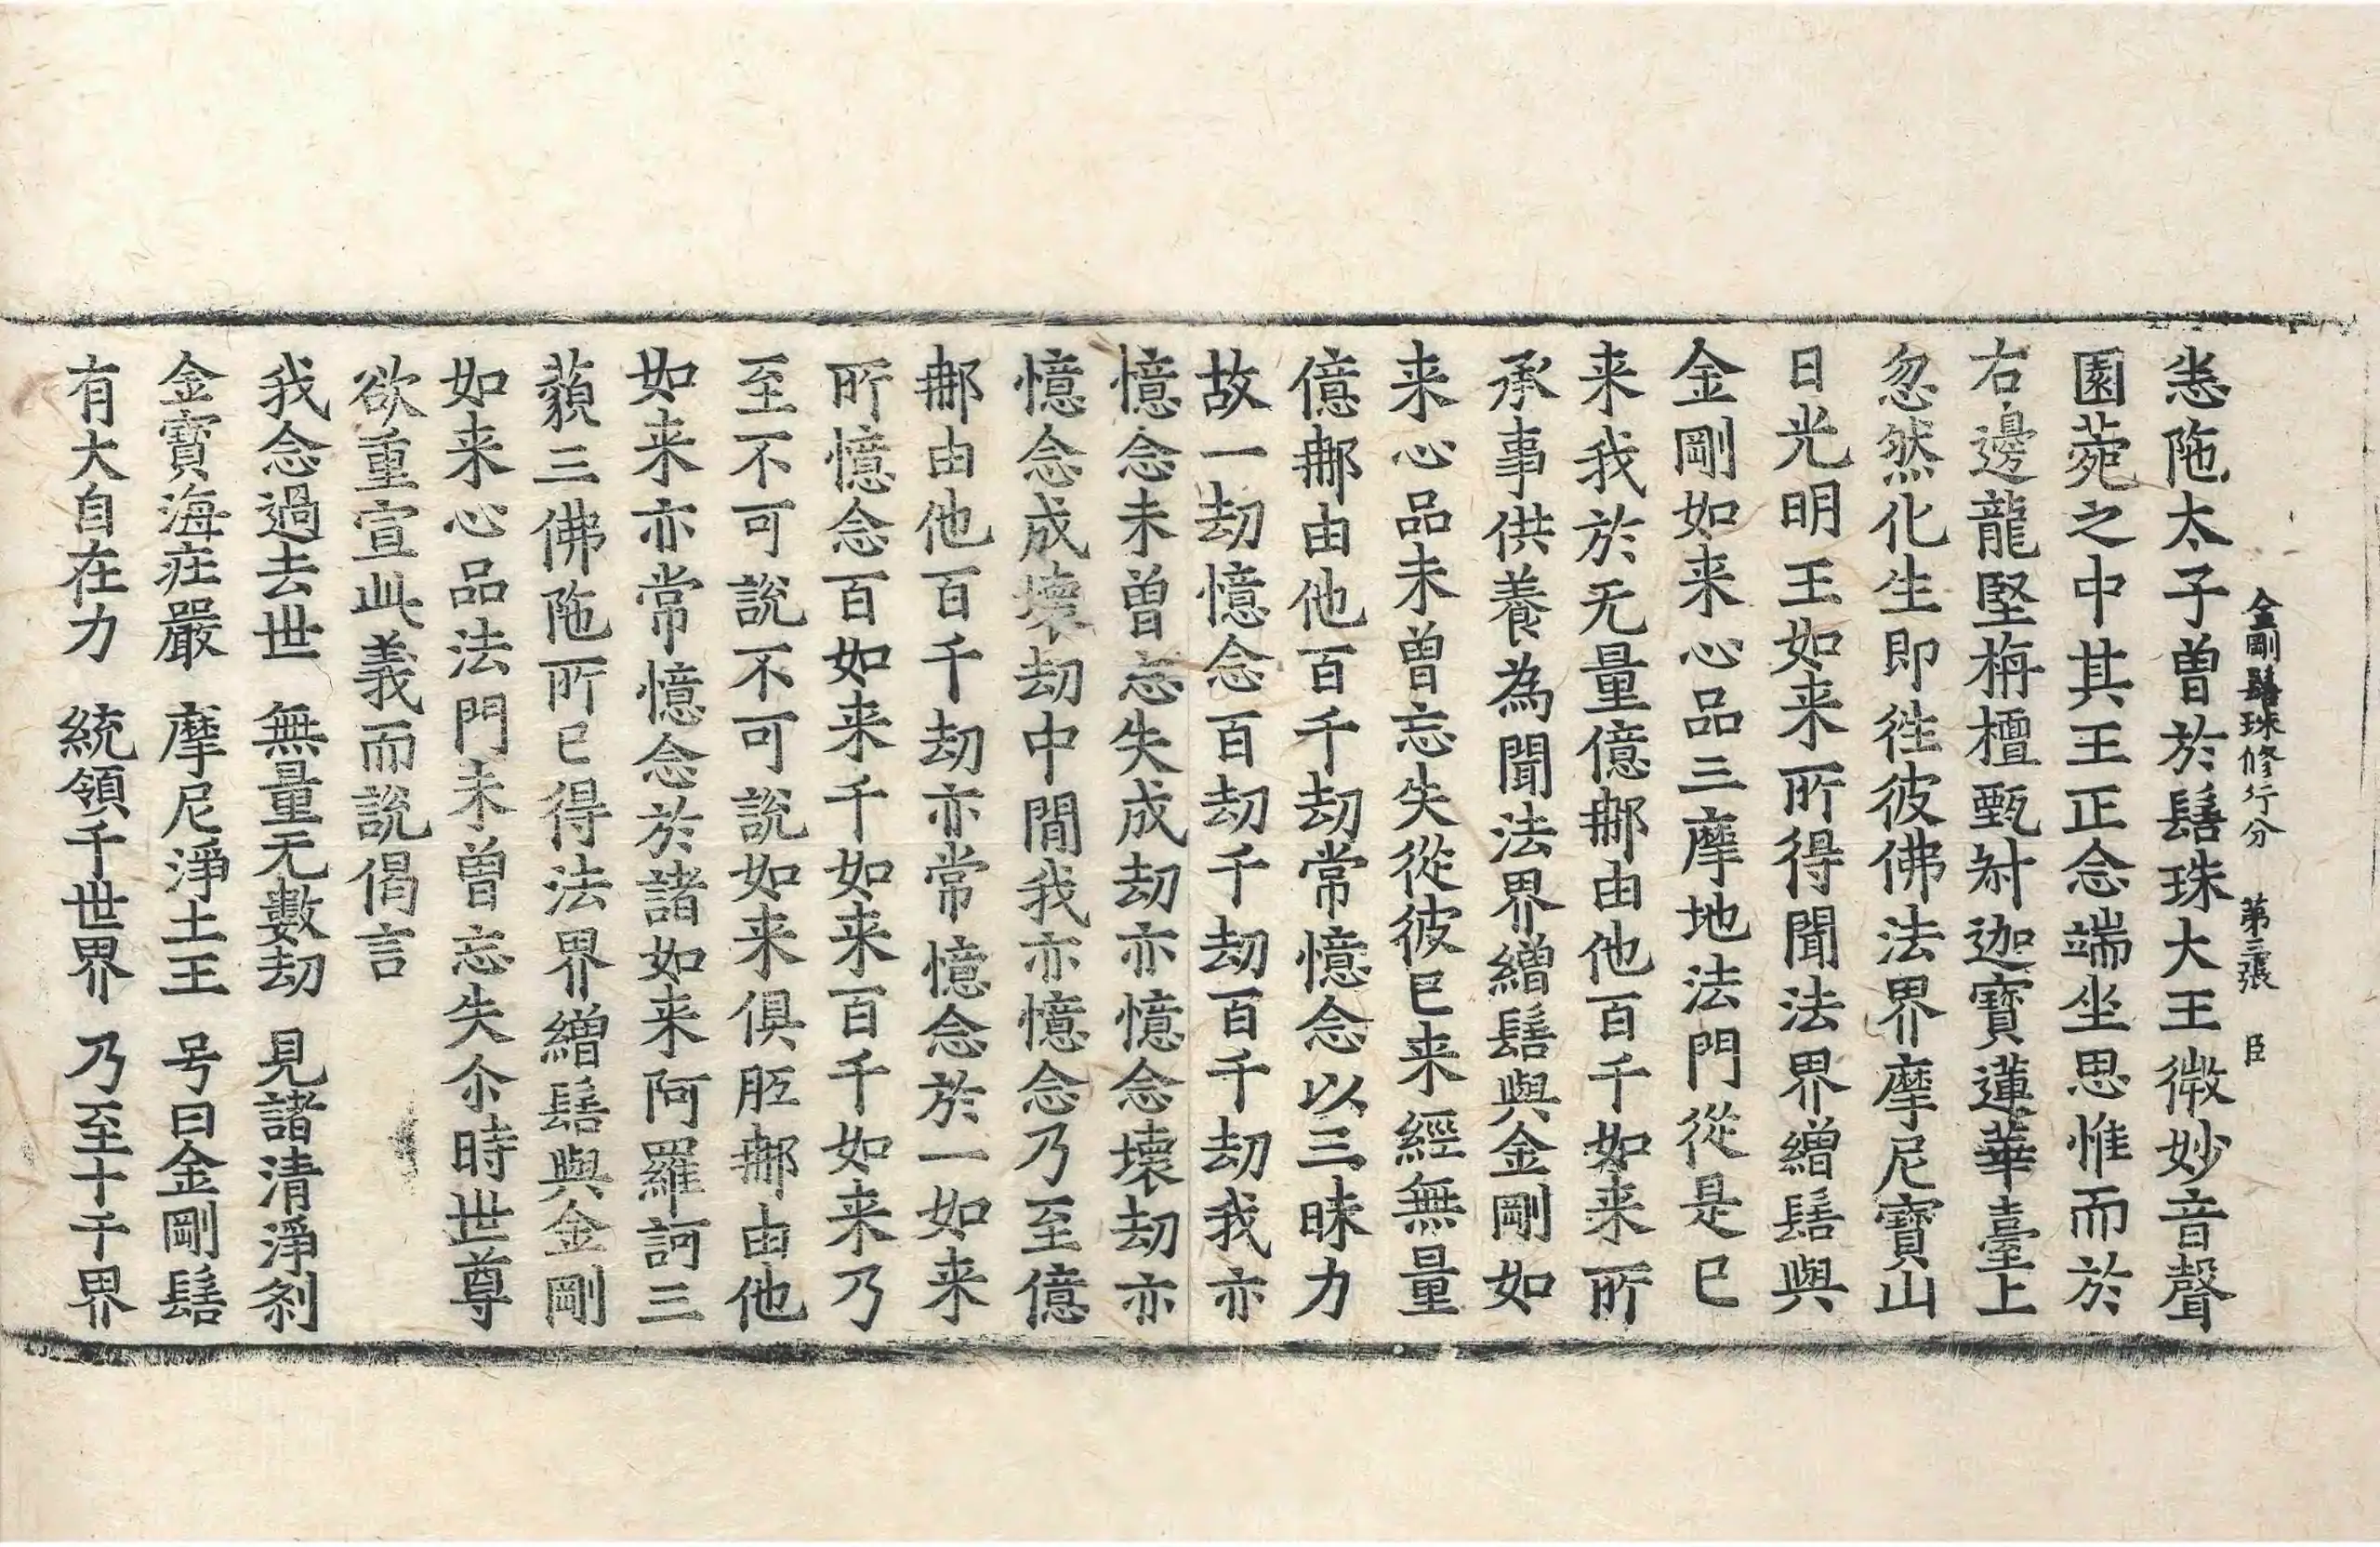 金剛鬘珠修行分 第三張 臣
恙陁太子曽於鬘珠大王微妙音聲
園菀之中其王正念端坐思惟而於
右邊龍堅栴檀甄叔迦寶蓮華臺上
忽然化生即徃彼佛法界摩尼寶山
日光明王如来所得聞法界繒鬘與
金剛如来心品三摩地法門從是已
来我於无量億那由他百千如来所
承事供養為聞法界繒鬘與金剛如
来心品未曽忘失從彼已来經無量
億那由他百千劫常憶念以三昧力
故一劫憶念百劫千劫百千劫我亦
憶念未曽忘失成劫亦憶念壞劫亦
憶念成壞劫中間我亦憶念乃至億
那由他百千劫亦常憶念於一如来
所憶念百如来千如来百千如来乃
至不可說不可說如来俱胝那由他
如来亦常憶念於諸如来阿羅訶三
藐三佛陁所已得法界繒鬘與金剛
如来心品法門未曽忘失尒時世尊
欲重宣此義而說偈言
我念過去世 無量无數劫 見諸清淨刹
金寶海庄嚴 摩尼淨土王 号曰金剛鬘
有大自在力 統領千世界 乃至十千界